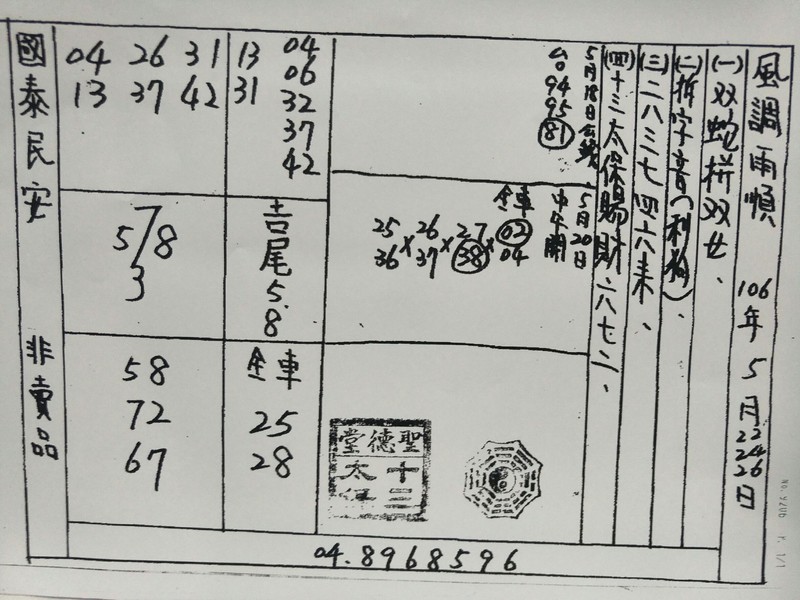 風調雨順 106年5月22 24 26日
(一)双蛇拼双女、
(二)拆字音(利狗)、
(三)二八三七四六来、
(四)十三太保賜財六七二、
5月18日公鎮
台 94 95 81
5月20日
中午開
全車 02 04
27 38
26 37
25 36
×××
聖德堂
十三太保
13 04
31 06
32
37
42
吉尾 5.8
全車
25
28
04 26 31
13 37 42
7
5/8
3
58
72
67
國泰民安 非賣品
04.8968596